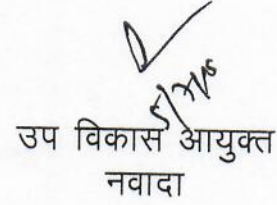 उप विकास आयुक्त
नवादा